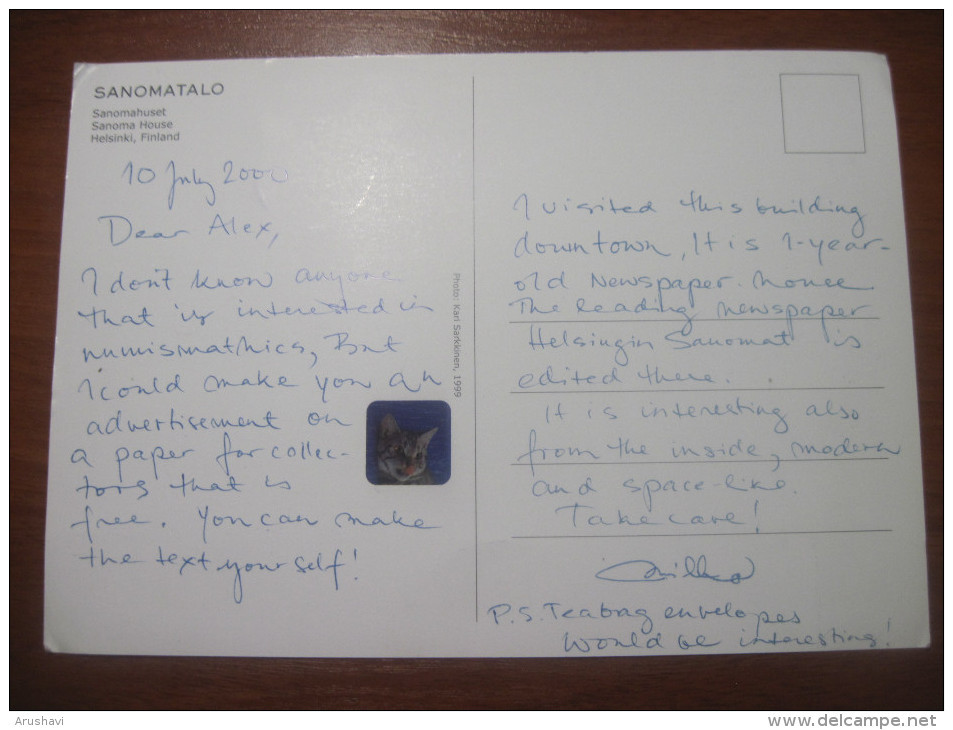 SANOMATALO
Sanomahuset
Sanoma House
Helsinki, Finland
10 July 2000
Dear Alex,
I don't know anyone
that is interested in
numismathics, But
I could make you an
advertisement on
a paper for collec-
tors that is
free. You can make
the text yourself!
Photo: Kari Sarkkinen, 1999
I visited this building
downtown, It is 1-year-
old Newspaper house
The leading newspaper
Helsingin Sanomat is
edited there.
It is interesting also
from the inside, modern
and space-like.
Take care!
P.S. Teabag envelopes
would be interesting!
Arushavi
www.delcampe.net